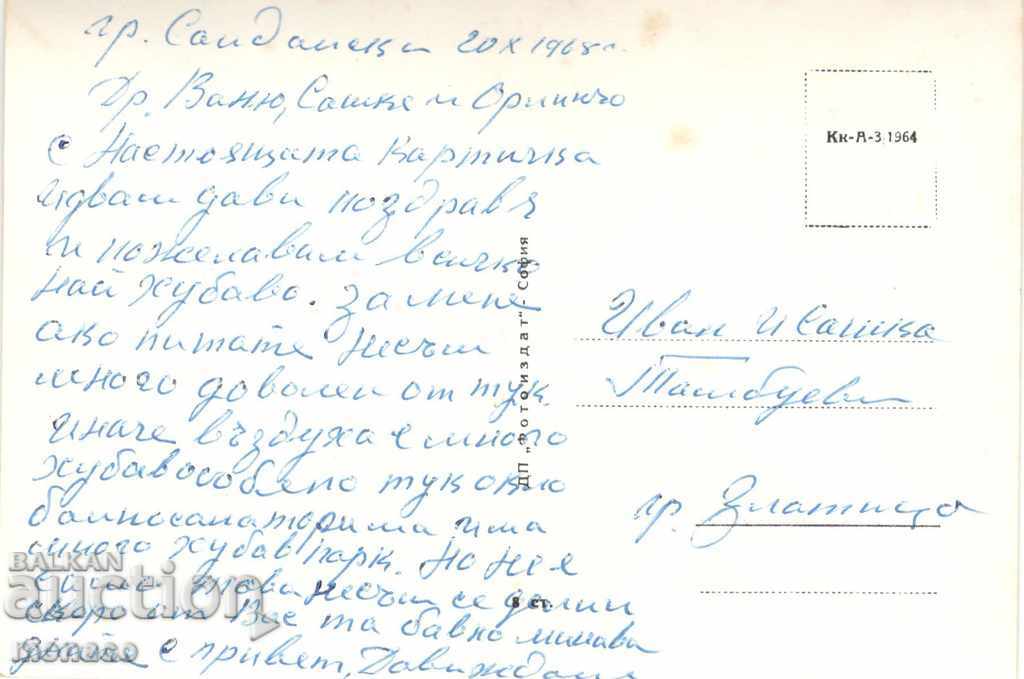 гр. Сандански 20 X 1968 г.
Др. Ваню, Сашке и Оринчо
с настоящата картичка
идвам дави поздравя
и пожелавам всичко
най хубаво. За мене
ако питате несъм
много доволен от тук.
иначе въздуха е много
хубаво особено тук около
балносанаториума има
много хубав парк. но не е
несъм се делил
скоро от Вас та бавно минава
с привет, Довиждане
Кк-А-3, 1964
ДП „Фотоиздат" - София
8 ст.
Иван и Сашка
Тамбуеви
гр. Златица
BALKAN
auction
monaso